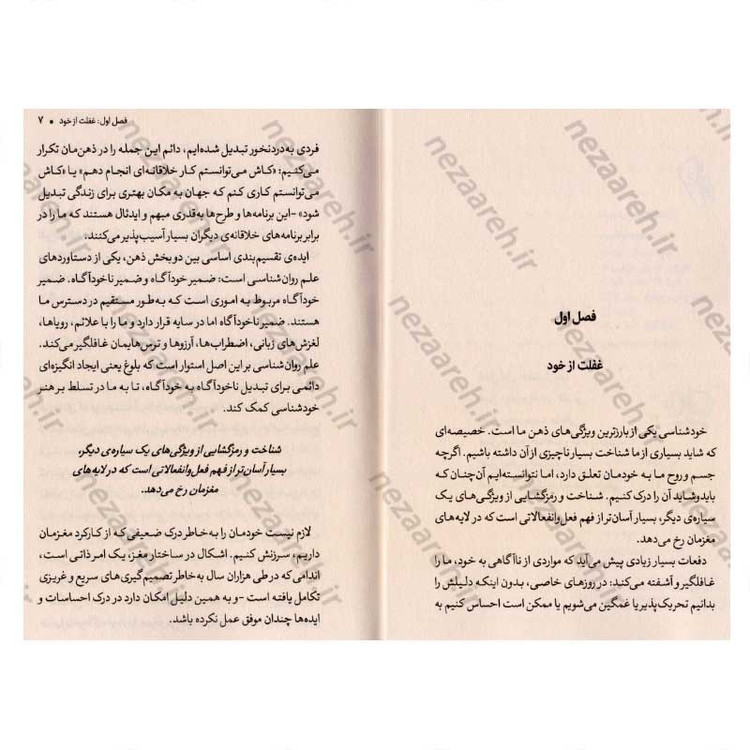 فصل اول
غفلت از خود
خودشناسی یکی از بارزترین ویژگی‌های ذهن ما است. خصیصه‌ای
که شاید بسیاری از ما شناخت بسیار ناچیزی از آن داشته باشیم. اگرچه
جسم و روح ما به خودمان تعلق دارد، اما نتوانسته‌ایم آن‌چنان که
باید و شاید آن را درک کنیم. شناخت و رمزگشایی از ویژگی‌های یک
سیاره‌ی دیگر، بسیار آسان‌تر از فهم فعل‌وانفعالاتی است که در لایه‌های
مغزمان رخ می‌دهد.
دفعات بسیار زیادی پیش می‌آید که مواردی از ناآگاهی به خود، ما را
غافلگیر و آشفته می‌کند: در روزهای خاصی، بدون اینکه دلیلش را
بدانیم تحریک‌پذیر یا غمگین می‌شویم یا ممکن است احساس کنیم به
فصل اول: غفلت از خود • ۷
فردی به‌دردنخور تبدیل شده‌ایم، دائم این جمله را در ذهن‌مان تکرار
می‌کنیم: «کاش می‌توانستم کار خلاقانه‌ای انجام دهم» یا «کاش
می‌توانستم کاری کنم که جهان به مکان بهتری برای زندگی تبدیل
شود» -این برنامه‌ها و طرح‌ها به‌قدری مبهم و ایدئال هستند که ما را در
برابر برنامه‌های خلاقانه‌ی دیگران بسیار آسیب‌پذیر می‌کنند.
ایده‌ی تقسیم‌بندی اساسی بین دو بخش ذهن، یکی از دستاوردهای
علم روان‌شناسی است: ضمیر خودآگاه و ضمیر ناخودآگاه. ضمیر
خودآگاه مربوط به اموری است که به‌طور مستقیم در دسترس ما
هستند. ضمیر ناخودآگاه اما در سایه قرار دارد و ما را با علائم، رویاها،
لغزش‌های زبانی، اضطراب‌ها، آرزوها و ترس‌هایمان غافلگیر می‌کند.
علم روان‌شناسی بر این اصل استوار است که بلوغ یعنی ایجاد انگیزه‌ای
دائمی برای تبدیل ناخودآگاه به خودآگاه، تا به ما در تسلط بر هنر
خودشناسی کمک کند.
شناخت و رمزگشایی از ویژگی‌های یک سیاره‌ی دیگر،
بسیار آسان‌تر از فهم فعل‌وانفعالاتی است که در لایه‌های
مغزمان رخ می‌دهد.
لازم نیست خودمان را به خاطر درک ضعیفی که از کارکرد مغزمان
داریم، سرزنش کنیم. اشکال در ساختار مغز، یک امر ذاتی است،
اندامی که در طی هزاران سال به خاطر تصمیم‌گیری‌های سریع و غریزی
تکامل یافته است -و به همین دلیل امکان دارد در درک احساسات و
ایده‌ها چندان موفق عمل نکرده باشد.
nezaareh.ir
nezaareh.ir
nezaareh.ir
nezaareh.ir
nezaareh.ir
nezaareh.ir